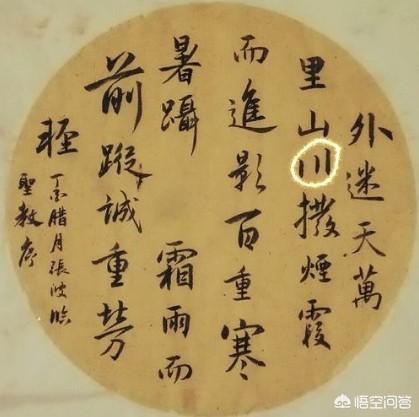 外迷天萬
里山川撥煙霞
而進影百重寒
暑躡霜雨而
前蹤誠重勞
輕
丁亥腊月張波臨
聖教序
悟空问答